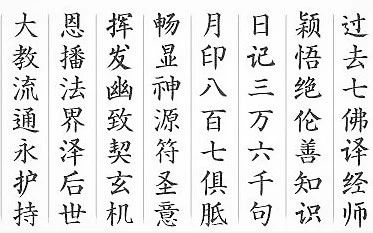 过去七佛译经师
颖悟绝伦善知识
日记三万六千句
月印八百七俱胝
畅显神源符圣意
挥发幽致契玄机
恩播法界泽后世
大教流通永护持